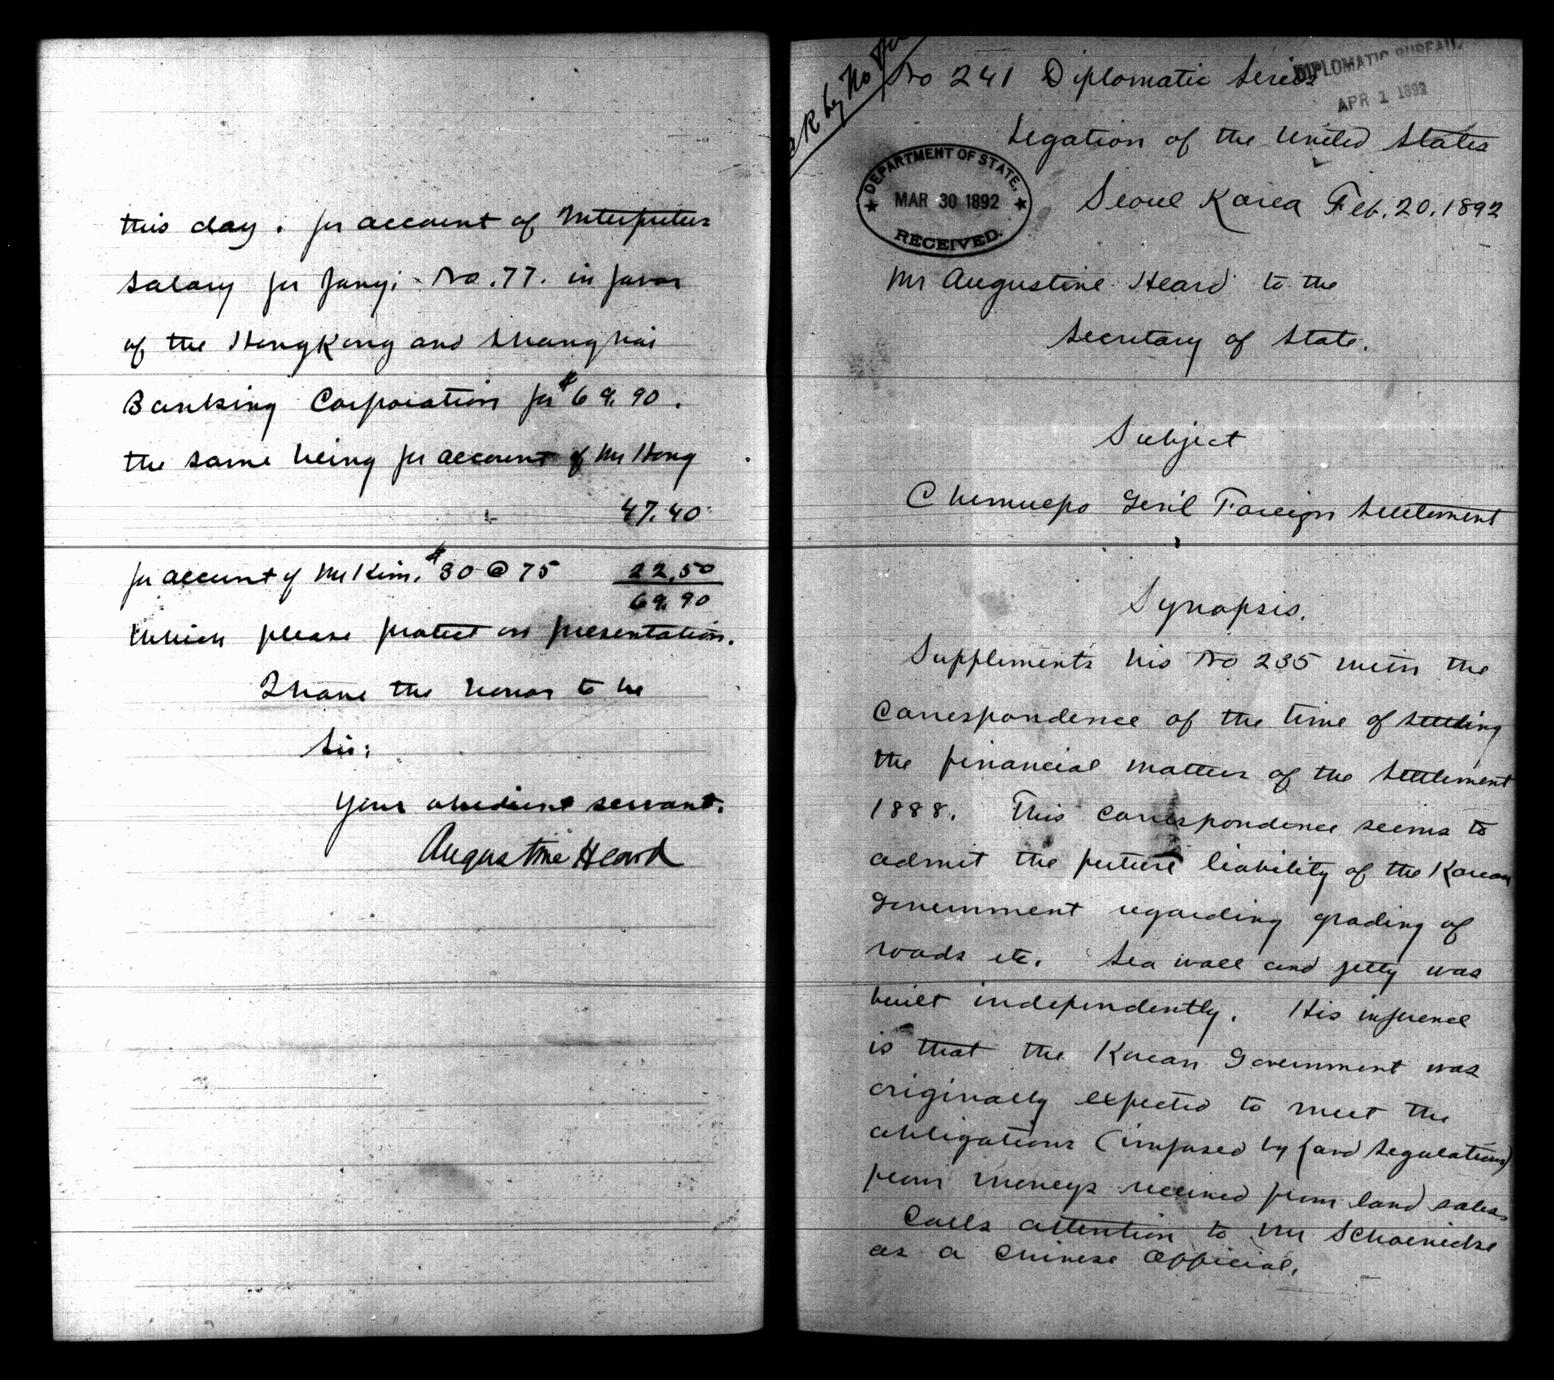 this day. for account of Interpreters
salary for Jany: No. 77. in favor
of the HongKong and Shanghai
Banking Corporation for $69.90.
the same being for account of Mr Hong
47.40
for account of Mr Kim. $30 @ 75 22.50
69.90
Which please protect on presentation.
I have the honor to be
Sir:
Your obedient servant.
Augustine Heard
No 241 Diplomatic Series
DIPLOMATIC BUREAU,
APR 1 1892
Legation of the United States
DEPARTMENT OF STATE,
MAR 30 1892
RECEIVED.
Seoul Korea Feb. 20. 1892
Mr Augustine Heard to the
Secretary of State.
Subject
Chemulpo Gen'l Foreign Settlement
Synopsis.
Supplements his No 235 with the
correspondence of the time of settling
the financial matters of the Settlement
1888. This correspondence seems to
admit the future liability of the Korean
Government regarding grading of
roads etc. Sea wall and jetty was
built independently. His inference
is that the Korean Government was
originally expected to meet the
obligations (imposed by land regulations)
from moneys received from land sales
Calls attention to Mr Schoenicke
as a Chinese Official.